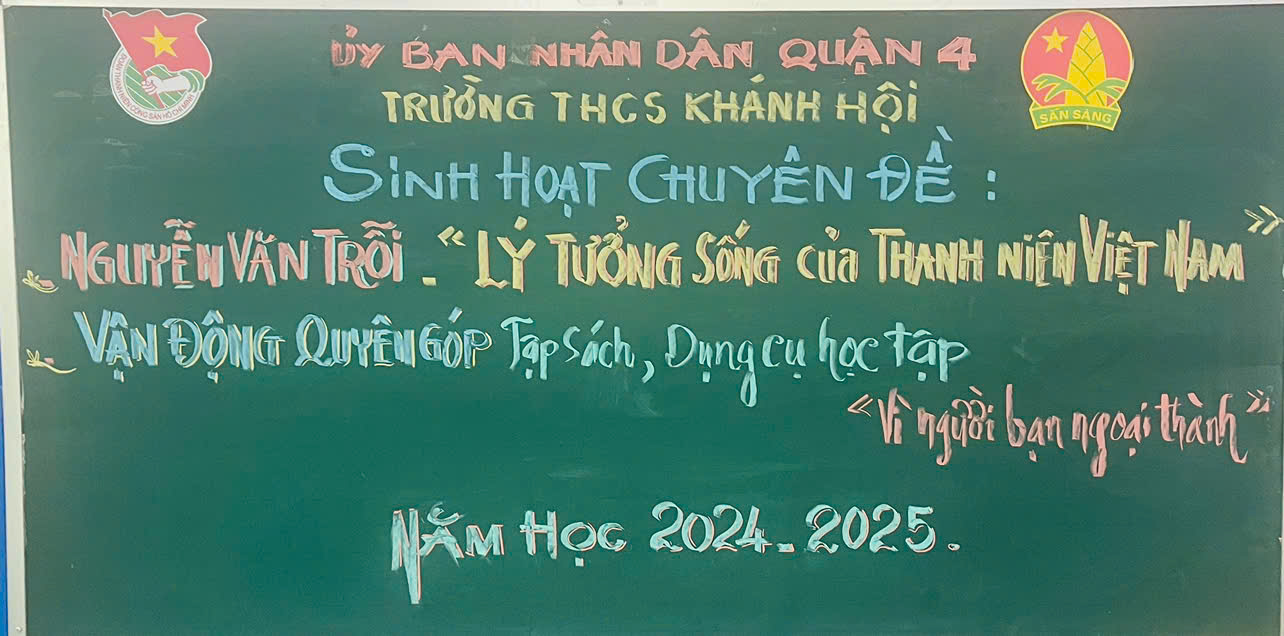 ỦY BAN NHÂN DÂN QUẬN 4
TRƯỜNG THCS KHÁNH HỘI
SINH HOẠT CHUYÊN ĐỀ :
NGUYỄN VĂN TRỖI. “LÝ TƯỞNG SỐNG của THANH NIÊN VIỆT NAM”
VẬN ĐỘNG QUYÊN GÓP Tập Sách, Dụng cụ học tập
“Vì người bạn ngoại thành”
NĂM HỌC 2024-2025.
ĐOÀN THANH NIÊN CỘNG SẢN HỒ CHÍ MINH
SẴN SÀNG